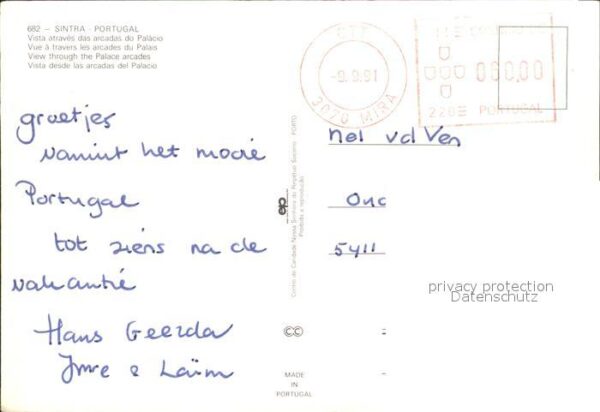 682 – SINTRA · PORTUGAL
Vista através das arcadas do Palácio
Vue à travers les arcades du Palais
View through the Palace arcades
Vista desde las arcadas del Palacio
CTT
-9.9.91
3070 MIRA
060,00
220E PORTUGAL
groetjes
vanuit het mooie
Portugal
tot ziens na de
vakantie
Hans Geerda
Imre & Laïm
Nel vd Ven
5411
ep
Centro de Caridade Nossa Senhora do Perpétuo Socorro · PORTO
Proibida a reprodução
CC
MADE
IN
PORTUGAL
privacy protection
Datenschutz